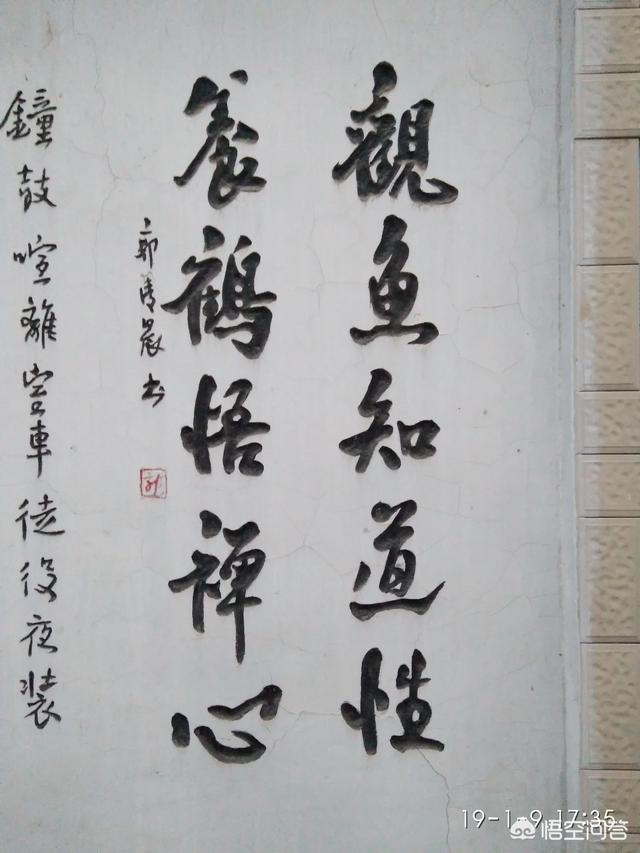 觀魚知道性
養鶴悟禪心
郭清晨书
鐘鼓喧離宫車徒役夜装
19-1-9 17:35
悟空问答